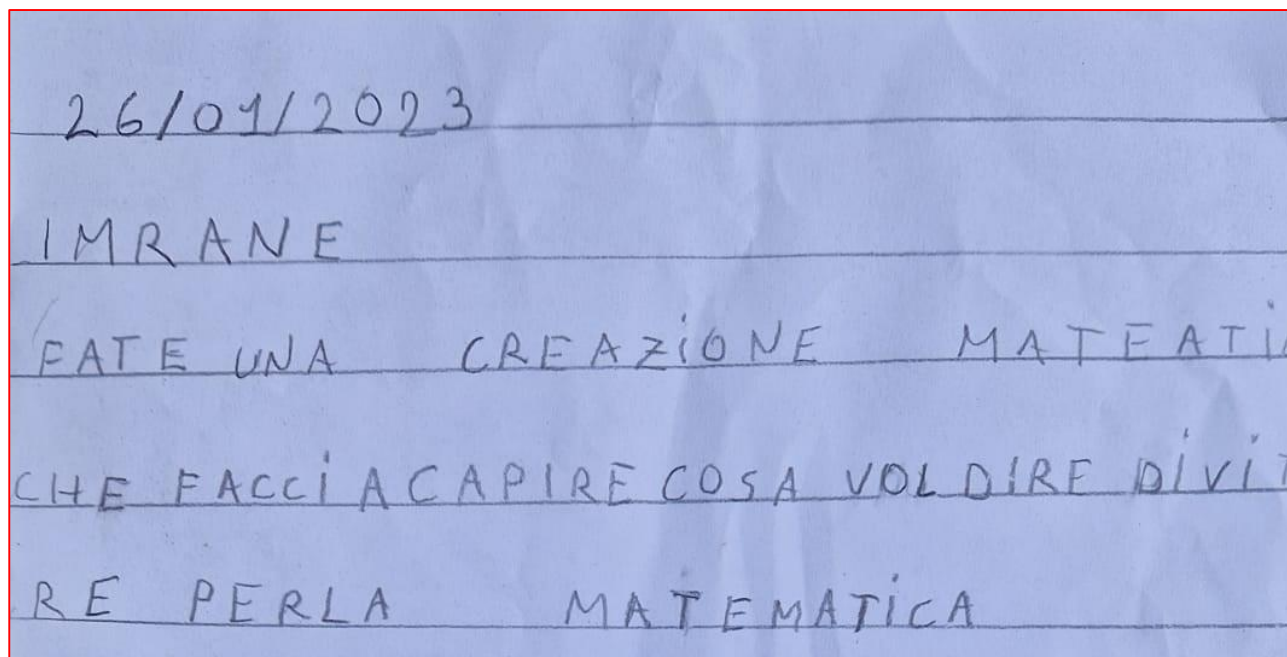 26/01/2023
IMRANE
FATE UNA CREAZIONE MATEATI
CHE FACCIA CAPIRE COSA VOL DIRE DIVI
RE PERLA MATEMATICA